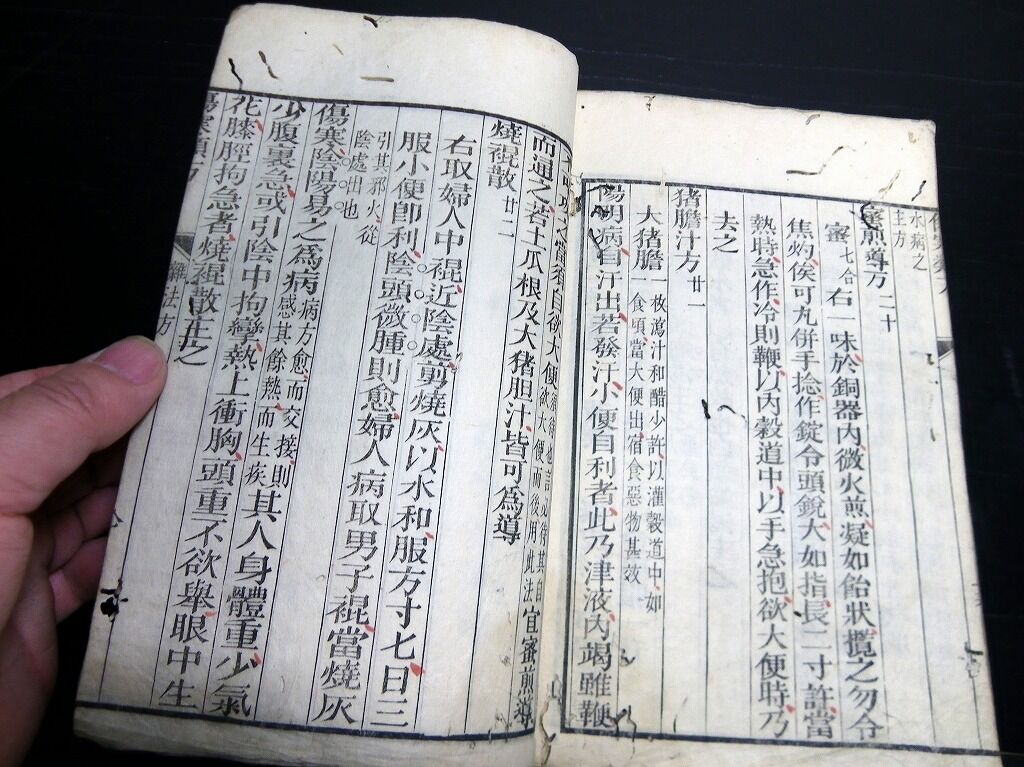 水病之
主方
蜜煎導方 二十
蜜 七合 右一味於銅器內微火煎凝如飴狀攪之勿令
焦灼俟可丸併手捻作錠令頭銳大如指長二寸許當
熱時急作冷則鞕以內穀道中以手急抱欲大便時乃
去之
猪膽汁方 廿一
大猪膽 一枚瀉汁和醋少許以灌穀道中如
一食頃當大便出宿食惡物甚效
陽明病自汗出若發汗小便自利者此乃津液內竭雖鞕
自欲大便
宜蜜煎導
而通之若土瓜根及大猪胆汁皆可爲導
燒裩散 廿二
右取婦人中裩近陰處剪燒灰以水和服方寸七日三
服小便卽利陰頭微腫則愈婦人病取男子裩當燒灰
引其邪火從
陰處出也
傷寒陰陽易之爲病 病方愈而交接則
感其餘熱而生疾 其人身體重少氣
少腹裏急或引陰中拘攣熱上衝胸頭重不欲舉眼中生
花膝脛拘急者燒裩散主之